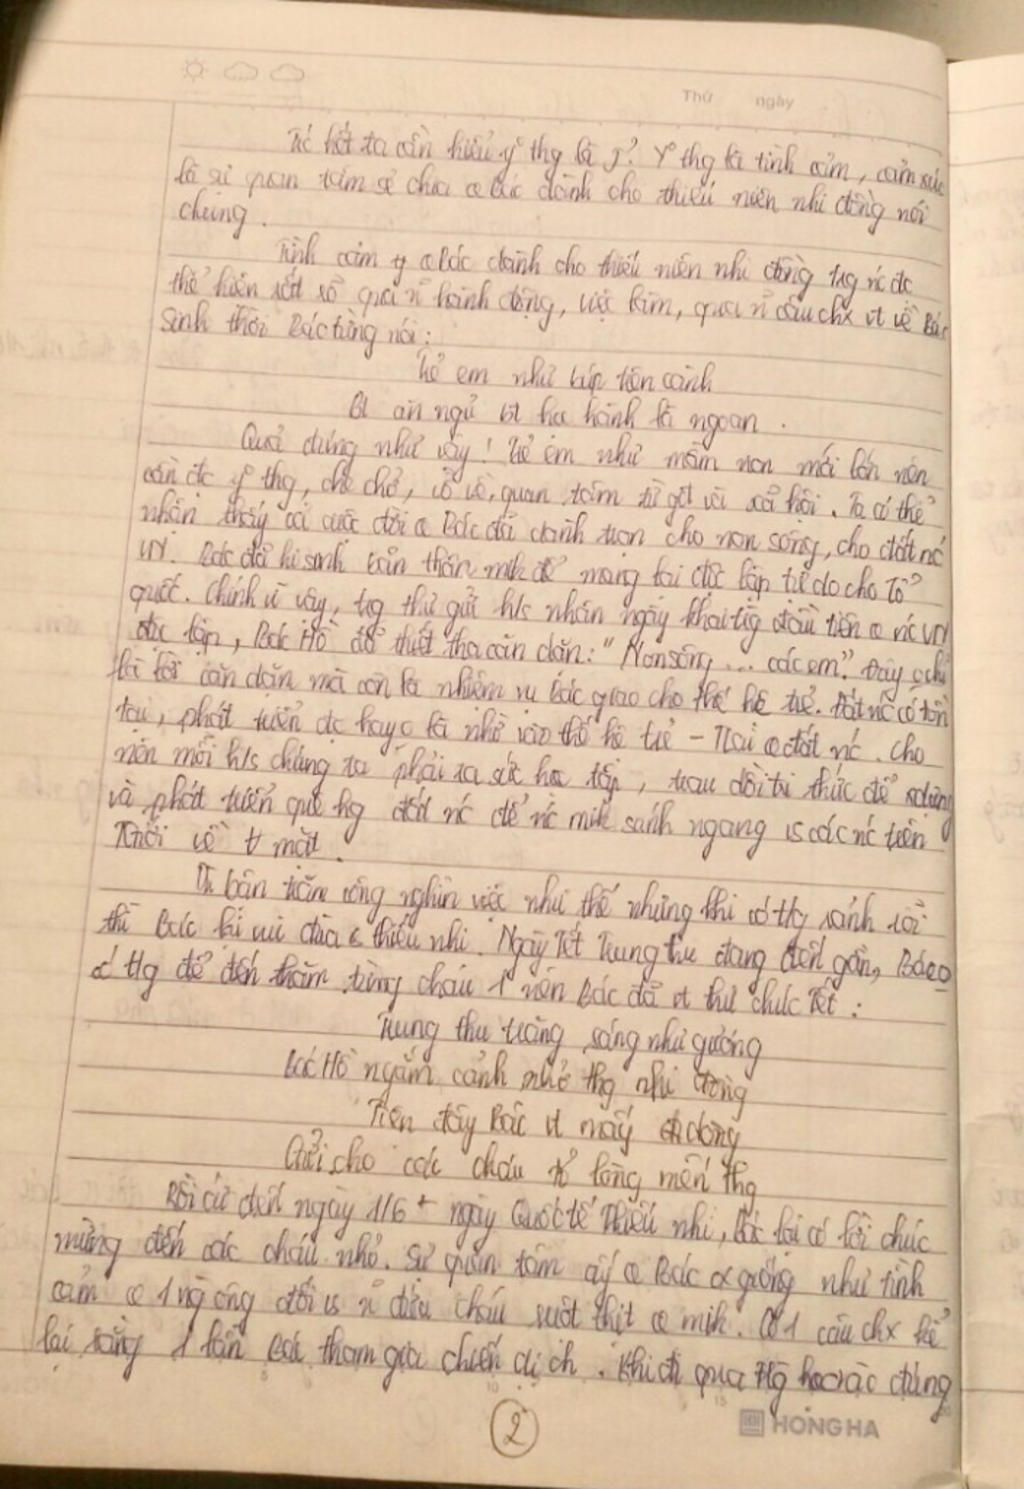 Thứ ngày
Tc hết ta cần hiểu y thg là j? Y thg là tình cảm, cảm xúc
là sự quan tâm sẻ chia Bác dành cho thiếu niên nhi đồng nói
chung.
Tình cảm y Bác dành cho thiếu niên nhi đồng trg nc đc
thể hiện rất rõ qua n hành động, việc làm, qua n câu chx vt về Bác
sinh thời Bác từng nói:
Trẻ em như búp trên cành
Bt ăn ngủ bt học hành là ngoan.
Quả đúng như vậy! Trẻ em như mầm non mới lớn nên
cần đc y thg, che chở, vỗ về, quan tâm từ gđ và xã hội. Ta có thể
nhận thấy cả cuộc đời Bác đã dành trọn cho non sông, cho đất nc
VN. Bác đã hi sinh bản thân mik để mang lại độc lập tự do cho Tổ
quốc. Chính vì vậy, trg thư gửi h/s nhân ngày khai trg đầu tiên nc VN
độc lập, Bác Hồ đã thiết tha căn dặn: "Non sông ... các em". Đây chỉ
là lời căn dặn mà còn là nhiệm vụ Bác giao cho thế hệ trẻ. Đất nc có tồn
tại, phát triển đc hay o là nhờ vào thế hệ trẻ - Tlai đất nc. Cho
nên mỗi h/s chúng ta phải ra sức học tập, trau dồi tri thức để xdựng
và phát triển quê hg đất nc để nc mik sánh ngang vs các nc trên
TKhới về mặt.
Dù bận trăm công nghìn việc như thế nhưng khi có tg rảnh rỗi
thì Bác lại vui đùa vs thiếu nhi. Ngày Tết Trung thu đang đến gần, Bác o
có tg để đến thăm từng cháu 1 nên Bác đã vt thư chúc Tết:
Trung thu trăng sáng như gương
Bác Hồ ngắm cảnh nhớ thg nhi đồng
Trên đây Bác vt mấy dòng
Gửi cho các cháu tỏ lòng mến thg
Rồi cứ đến ngày 1/6 + ngày Quốc tế Thiếu nhi, Bác lại có lời chúc
mừng đến các cháu nhỏ. Sự quan tâm ấy Bác giống như tình
cảm 1 ng ông đối vs n đứa cháu ruột thịt mik. Có 1 câu chx kể
lại rằng 1 lần Bác tham gia chiến dịch. Khi đi qua đúng
2
HONG HA